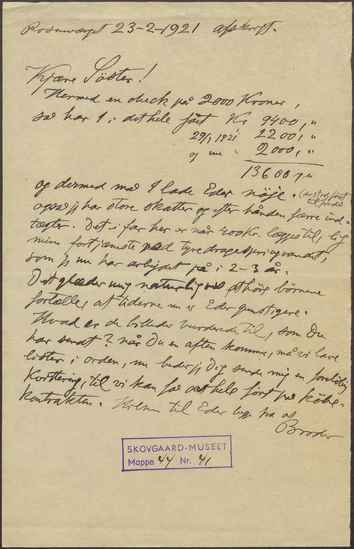 Rosenvænget 23-2-1921 afskrift.
Kjære Søster!
Hermed en check på 2000 Kroner,
så har I i det hele fået Kr. 9400,"
29/1 1921. 2200,"
og nu " 2000,"
13600,"
og dermed må I lade Eder nøje.
også jeg har store skatter og efter hånden færre ind-
tægter. Det i får her er når lægges til, lig
min fortjeneste ved tyredragerspringvandet,
som jeg nu har arbejdet på i 2-3 år.
Det glæder mig naturligvis at høre børnene
fortælle, at tiderne nu er Eder gunstigere.
Hvad er de billeder vurderede til, som Du
har sendt? når Du en aften kommer, må vi lave
listen i orden, nu beder jeg Dig sende mig en foreløbig
Kvittering, til vi kan få det hele ført på købe-
kontrakten. Hilsen til Eder fra os
Broder
SKOVGAARD-MUSEET
Mappe 44 Nr. 41